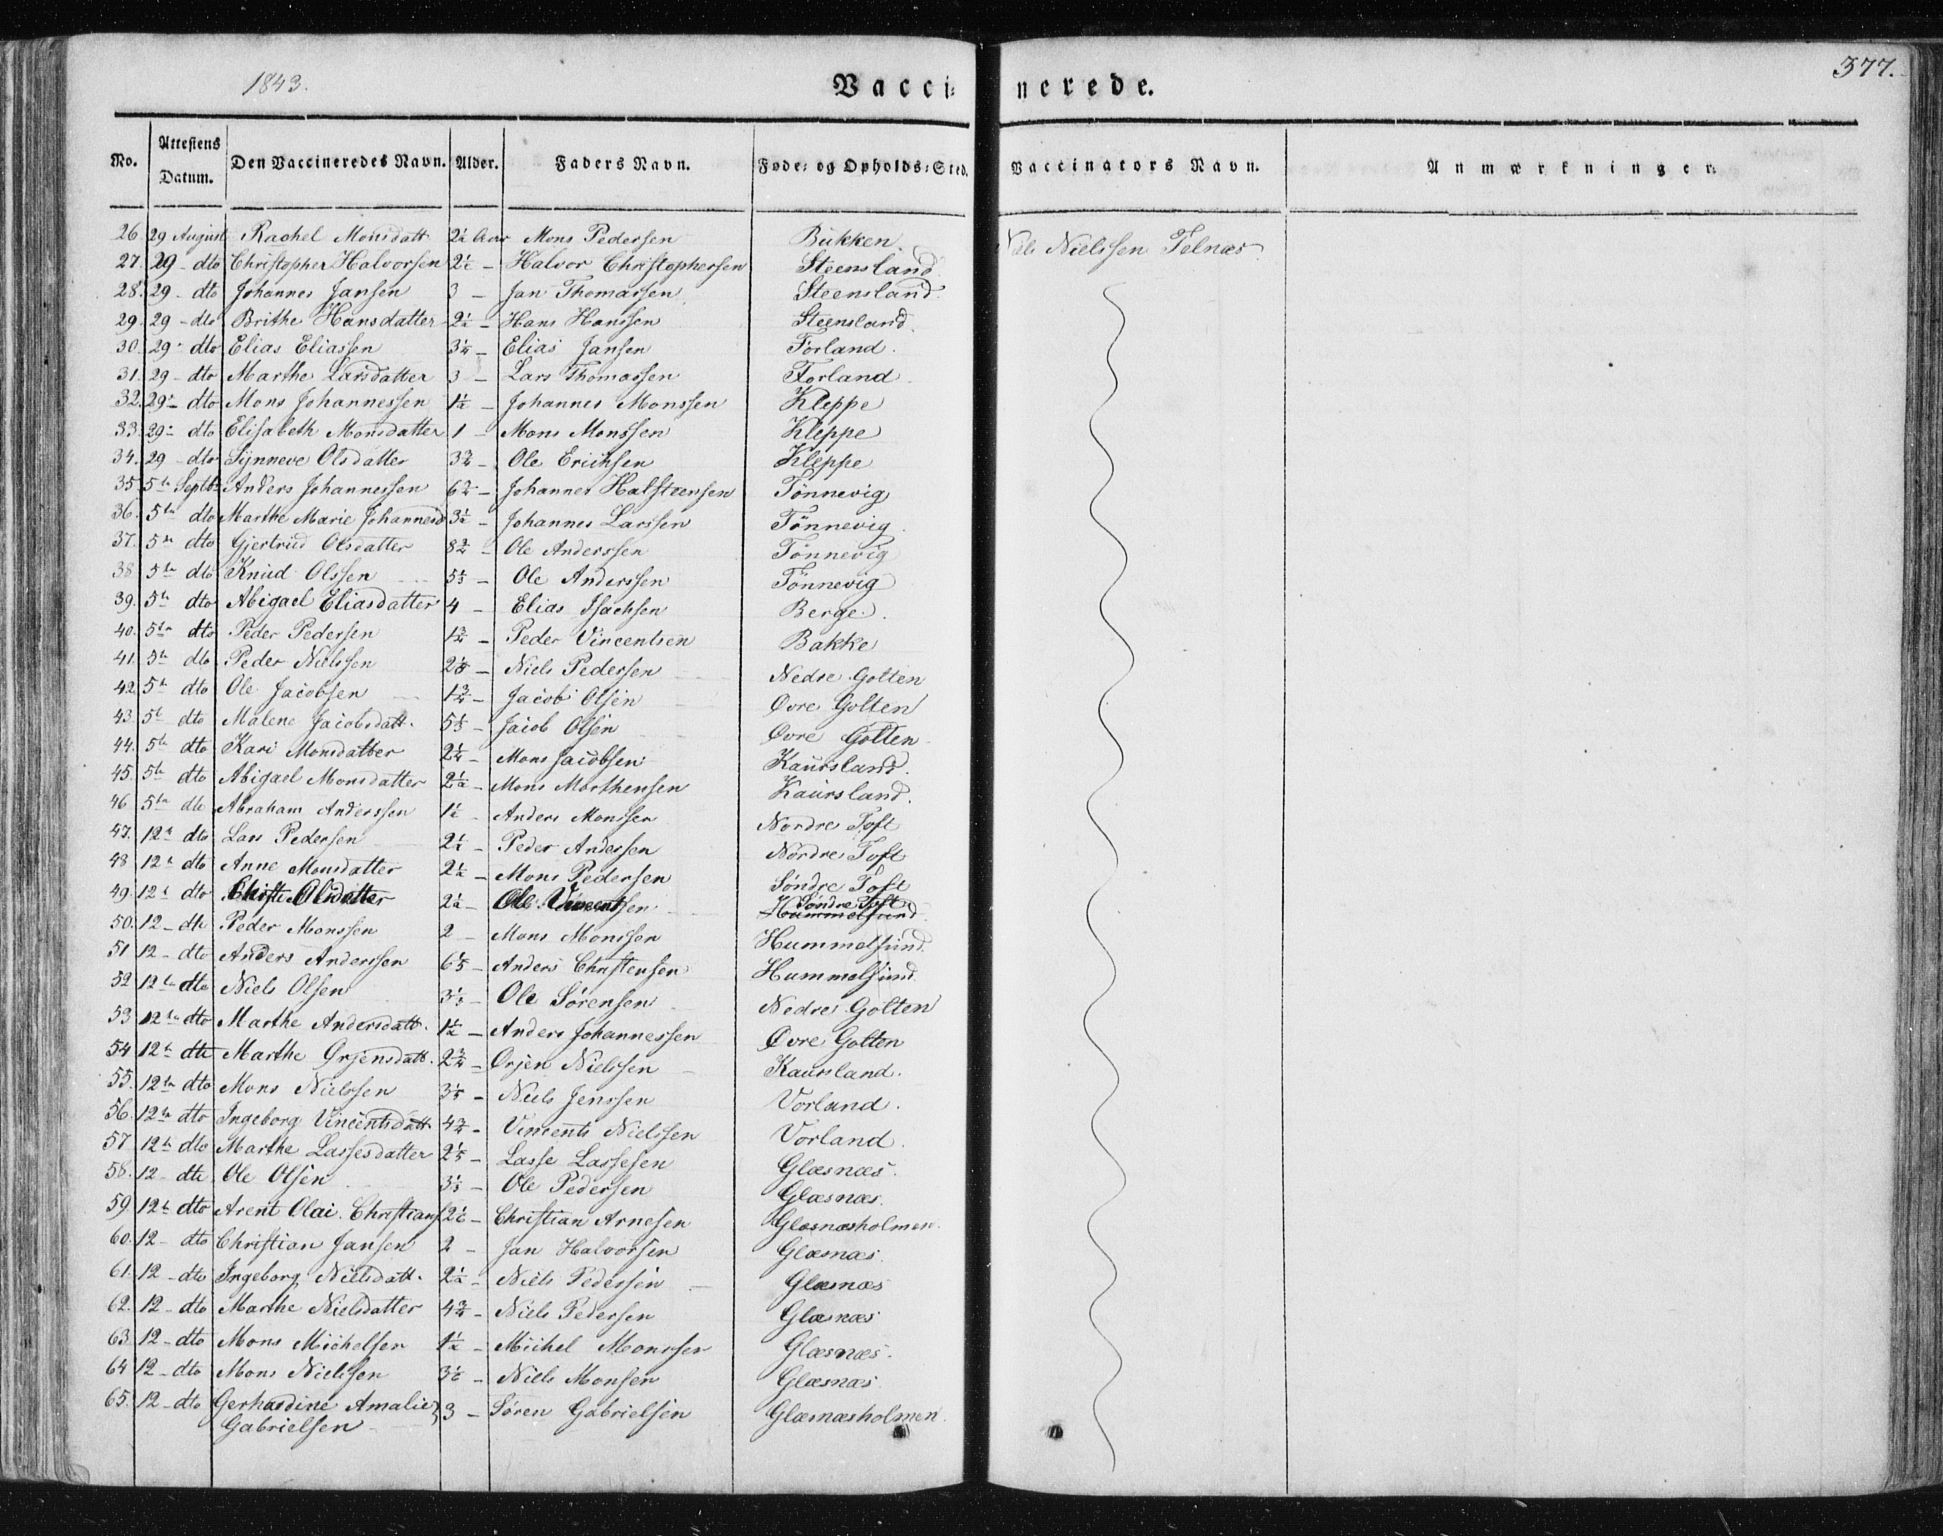 377.
1843.
Vaccinerede.
No. Attestens Datum. Den Vaccineredes Navn. Alder. Faders Navn. Føde= og Opholds=Sted. Vaccinators Navn. Anmærkninger.
26 29 August Rachel Monsdatt Mons Pedersen Bukken. Niels Nielssen Telnæs
27. 29 - dto Christopher Halvorsen Halvor Christophersen Steensland
28. 29 - dto Johannes Jansen 3 - Jan Thomassen Steensland.
29. 29 - dto Brithe Hansdatter 2½ - Hans Hanssen Steensland.
30. 29 - dto Elias Eliassen 3¼ - Elias Jansen Forland.
31. 29 - dto Marthe Larsdatter 3 - Lars Thomassen Forland
32. 29 - dto Mons Johannessen 1½ - Johannes Monssen Kleppe
33. 29 - dto Elisabeth Monsdatter 1 - Mons Monssen Kleppe
34. 29 - dto Synneve Olsdatter 3¾ - Ole Erichsen Kleppe
35. 5te Septbr Anders Johannessen 6¾ - Johannes Halsteensen Tönnevig
36. 5te dto Marthe Marie Johannesd 3½ - Johannes Larssen Tönnevig.
37. 5te dto Gjertrud Olsdatter 8¾ - Ole Anderssen Tönnevig
38 5te dto Knud Olssen Ole Anderssen Tönnevig
39. 5te dto Abigael Eliasdatter 4 - Elias Isachsen Berge.
40. 5te dto Peder Pedersen 1¾ - Peder Vincentsen Bakke
41. 5te dto Peder Nielssen Niels Pedersen Nedre Golten
42. 5te dto Ole Jacobsen 1¾ - Jacob Olsen Øvre Golten
43. 5te dto Malene Jacobsdatt. Jacob Olsen Øvre Golten
44. 5te dto Kari Monsdatter 2¼ - Mons Jacobsen Kaursland.
45. 5te dto Abigael Monsdatter 2½ - Mons Morthensen Kaursland.
46 5te dto Abraham Anderssen Anders Monssen Nordre Toft
47. 12te dto Lars Pedersen Peder Andersen Nordre Toft
48 12te dto Anne Monsdatter 2½ - Mons Pedersen Söndre Toft
49. 12te dto Olsdatter 2½ - Ole Vincentsen Söndre Toft Hummelsund
50. 12 - dto Peder Monssen 2 - Mons Monssen Hummelsund.
51 12 - dto Anders Anderssen Anders Christensen Hummelsund
52 12te dto Niels Olsen 3⅓ - Ole Sörensen Nedre Golten
53 12te dto Marthe Andersdatt. 1½ - Anders Johannessen Øvre Golten
54 12te dto Marthe Ørjensdatt. 2¾ - Ørjen Nielssen Kaursland.
55. 12te dto Mons Nielssen Niels Jenssen Vorland.
56. 12te dto Ingeborg Vincentsdatt 4¾ - Vincents Nielssen Vorland.
57. 12te dto Marthe Lassesdatter Lasse Lassesen Glæsnæs.
58. 12 - dto Ole Olsen 3⅓ - Ole Pedersen Glæsnæs.
59 12te dto Arent Olai Christians Christian Arnesen Glæsnæsholmen.
60. 12 - dto Christian Jansen 2 - Jan Halvorsen Glæsnæs.
61. 12 - dto Ingeborg Nielsdatt. 2½ - Niels Pedersen Glæsnæs
62. 12 - dto Marthe Nielsdatter 4¾ - Niels Pedersen Glæsnæs
63 12 - dto Mons Michelsen 1½ - Michel Monssen Glæsnæs.
64 12 - dto Mons Nielssen Niels Monsen Glæsnæs
65. 12 - dto Gerhardine Amalie 3 - Sören Gabrielsen Glæsnæsholmen.
Gabrielsen